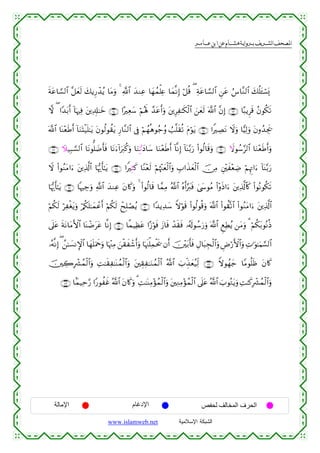 المصحف الشريف برواية هشام عن ابن عامر
يَسْـَٔلُكَ ٱلنَّاسُ عَنِ ٱلسَّاعَةِ ۖ قُلْ إِنَّمَا عِلْمُهَا عِندَ ٱللَّهِ ۚ وَمَا يُدْرِيكَ لَعَلَّ ٱلسَّاعَةَ
تَكُونُ قَرِيبًا ﴿٦٣﴾ إِنَّ ٱللَّهَ لَعَنَ ٱلْكَٰفِرِينَ وَأَعَدَّ لَهُمْ سَعِيرًا ﴿٦٤﴾ خَٰلِدِينَ فِيهَآ أَبَدًا ۖ لَّا
يَجِدُونَ وَلِيًّا وَلَا نَصِيرًا ﴿٦٥﴾ يَوْمَ تُقَلَّبُ وُجُوهُهُمْ فِى ٱلنَّارِ يَقُولُونَ يَٰلَيْتَنَآ أَطَعْنَا ٱللَّهَ
وَأَطَعْنَا ٱلرَّسُولَا ﴿٦٦﴾ وَقَالُوا۟ رَبَّنَآ إِنَّآ أَطَعْنَا سَادَٰتِنَا وَكُبَرَآءَنَا فَأَضَلُّونَا ٱلسَّبِيلَا ﴿٦٧﴾
رَبَّنَآ ءَاتِهِمْ ضِعْفَيْنِ مِنَ ٱلْعَذَابِ وَٱلْعَنْهُمْ لَعْنًا كَثِيرًا ﴿٦٨﴾ يَٰٓأَيُّهَا ٱلَّذِينَ ءَامَنُوا۟ لَا
تَكُونُوا۟ كَٱلَّذِينَ ءَاذَوْا۟ مُوسَىٰ فَبَرَّأَهُ ٱللَّهُ مِمَّا قَالُوا۟ ۚ وَكَانَ عِندَ ٱللَّهِ وَجِيهًا ﴿٦٩﴾ يَٰٓأَيُّهَا
ٱلَّذِينَ ءَامَنُوا۟ ٱتَّقُوا۟ ٱللَّهَ وَقُولُوا۟ قَوْلًا سَدِيدًا ﴿٧٠﴾ يُصْلِحْ لَكُمْ أَعْمَٰلَكُمْ وَيَغْفِرْ لَكُمْ
ذُنُوبَكُمْ ۗ وَمَن يُطِعِ ٱللَّهَ وَرَسُولَهُۥ فَقَدْ فَازَ فَوْزًا عَظِيمًا ﴿٧١﴾ إِنَّا عَرَضْنَا ٱلْأَمَانَةَ عَلَى
ٱلسَّمَٰوَٰتِ وَٱلْأَرْضِ وَٱلْجِبَالِ فَأَبَيْنَ أَن يَحْمِلْنَهَا وَأَشْفَقْنَ مِنْهَا وَحَمَلَهَا ٱلْإِنسَٰنُ ۖ إِنَّهُۥ
كَانَ ظَلُومًا جَهُولًا ﴿٧٢﴾ لِّيُعَذِّبَ ٱللَّهُ ٱلْمُنَٰفِقِينَ وَٱلْمُنَٰفِقَٰتِ وَٱلْمُشْرِكِينَ
وَٱلْمُشْرِكَٰتِ وَيَتُوبَ ٱللَّهُ عَلَى ٱلْمُؤْمِنِينَ وَٱلْمُؤْمِنَٰتِ ۗ وَكَانَ ٱللَّهُ غَفُورًا رَّحِيمًا ﴿٧٣﴾
الحرف المخالف لحفص الإدغام الإمالة
الشبكة الإسلامية www.islamweb.net